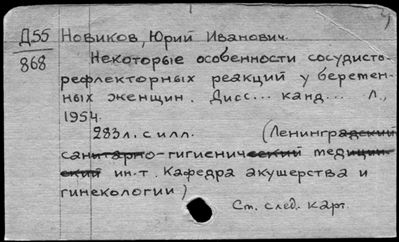 Д55 Новиков, Юрий Иванович.
868 Некоторые особенности сосудисто-
рефлекторных реакций у беремен-
ных женщин. Дисс... канд... Л.,
1954.
283л. с илл. (Ленинградский
санитарно-гигиенический медицин-
ский ин-т. Кафедра акушерства и
гинекологии)
См. след. карт.